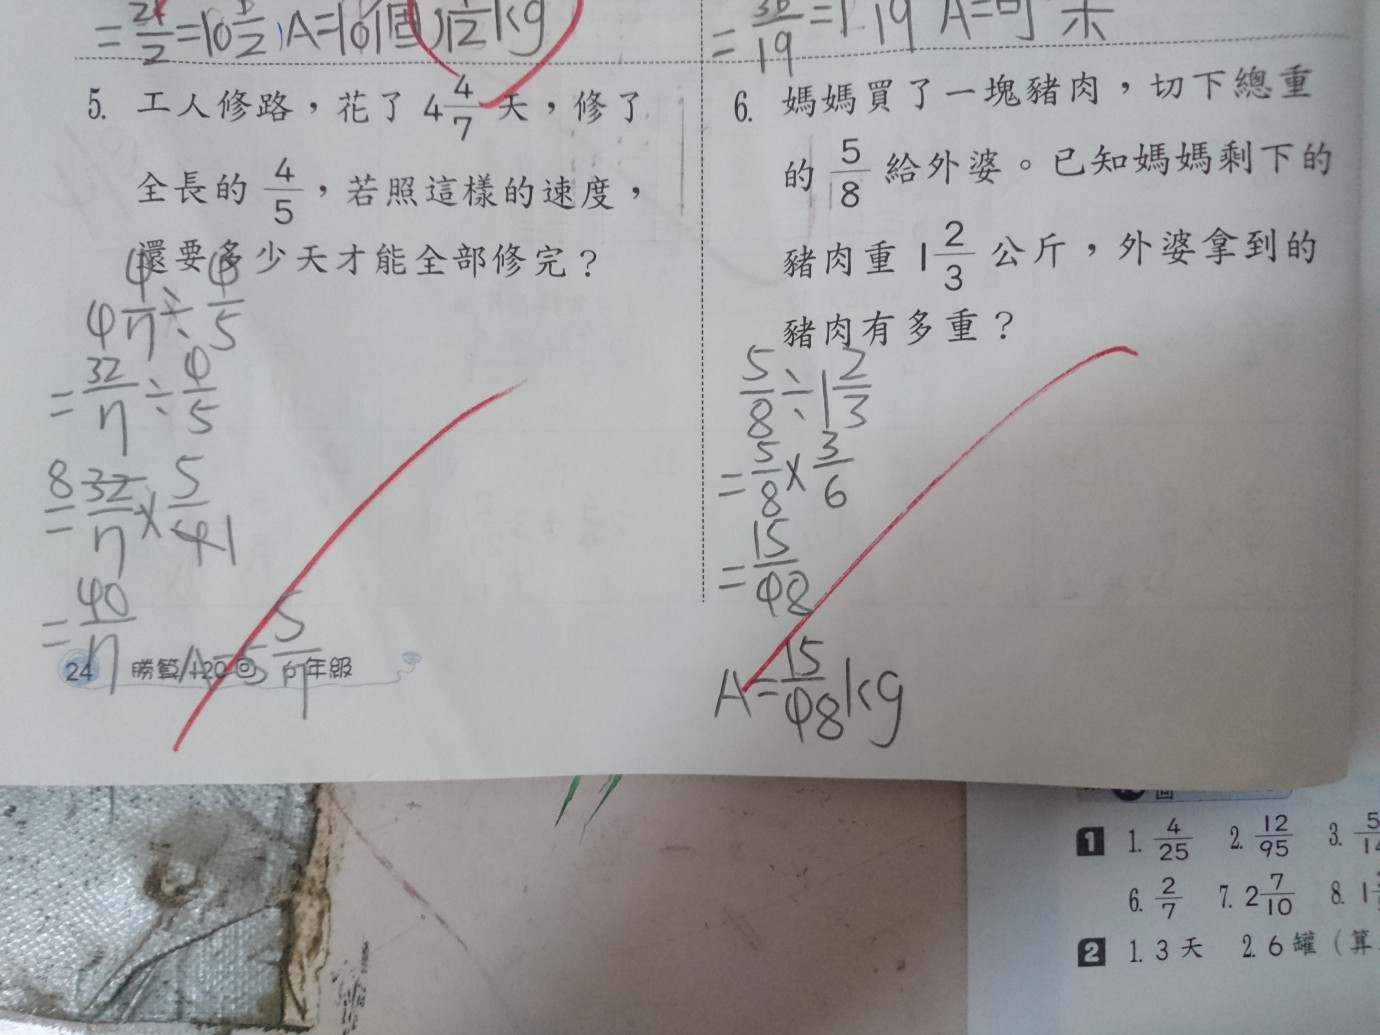 = 21/2 = 10 1/2, A=10個, 1/2 kg
= 36/19 = 1 A=可 米
5. 工人修路，花了 4 4/7 天，修了
全長的 4/5，若照這樣的速度，
還要多少天才能全部修完？
4 4/7 ÷ 4/5
= 32/7 ÷ 4/5
= 8 32/7 × 5/4 1
= 40/7
A=5 5/7
24 勝算 120 回 六年級
6. 媽媽買了一塊豬肉，切下總重
的 5/8 給外婆。已知媽媽剩下的
豬肉重 1 2/3 公斤，外婆拿到的
豬肉有多重？
5/8 ÷ 1 2/3
= 5/8 × 3/6
= 15/48
A= 15/48 kg
回
1 1. 4/25 2. 12/95 3. 5/14
6. 2/7 7. 2 7/10 8. 1
2 1. 3 天 2. 6 罐（算